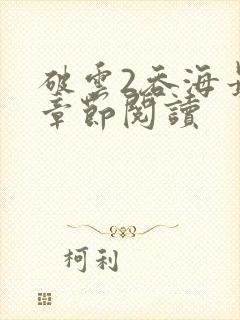 破雲2吞海最
章節閱讀
柯利